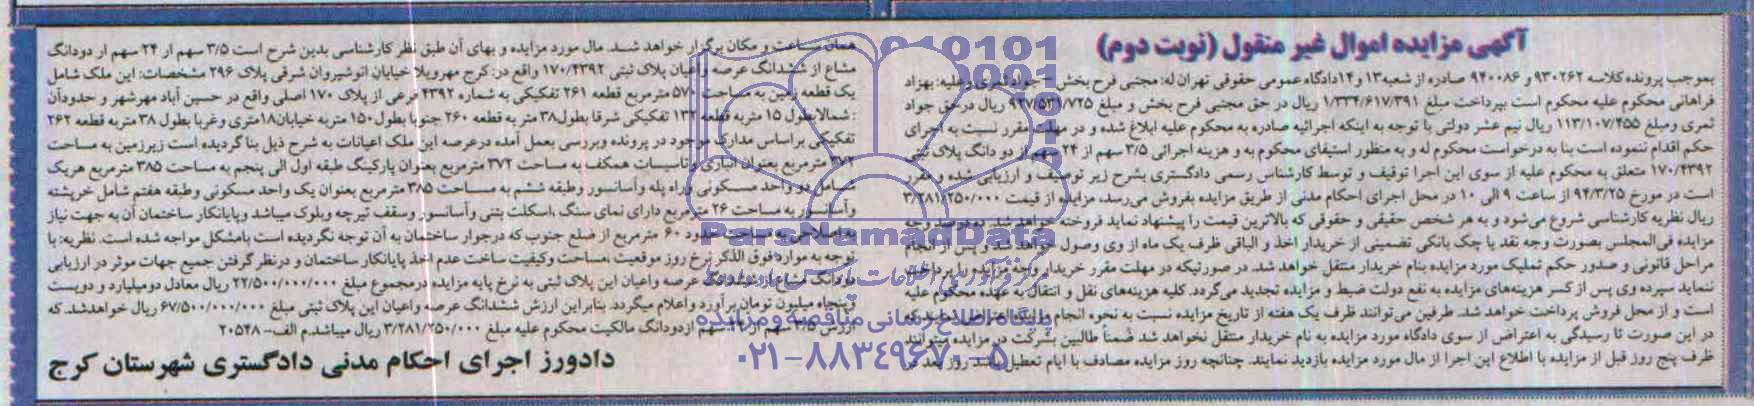 آگهی مزایده اموال غیر منقول (نوبت دوم)
بموجب پرونده کلاسه ۹۳۰۲۶۲ و ۹۴۰۰۸۶ صادره از شعبه ۱۳ و ۱۴ دادگاه عمومی حقوقی تهران له: مجتبی فرح بخش - جواد ثمری وعلیه: بهزاد
فراهانی محکوم علیه محکوم است بپرداخت مبلغ ۱/۳۳۴/۶۱۷/۳۹۱ ریال در حق مجتبی فرح بخش و مبلغ ۹۲۷/۵۳۱/۷۲۵ ریال درحق جواد
ثمری ومبلغ ۱۱۳/۱۰۷/۴۵۵ ریال نیم عشر دولتی با توجه به اینکه اجرائیه صادره به محکوم علیه ابلاغ شده و در مهلت مقرر نسبت به اجرای
حکم اقدام ننموده است بنا به درخواست محکوم له و به منظور استیفای محکوم به و هزینه اجرائی ۳/۵ سهم از ۲۴ سهم از دو دانگ پلاک ثبتی
۱۷۰/۴۳۹۲ متعلق به محکوم علیه از سوی این اجرا توقیف و توسط کارشناس رسمی دادگستری بشرح زیر توصیف و ارزیابی شده و مقرر
است در مورخ ۹۴/۳/۲۵ از ساعت ۹ الی ۱۰ در محل اجرای احکام مدنی از طریق مزایده بفروش می‌رسد، مزایده از قیمت ۳/۲۸۱/۲۵۰/۰۰۰
ریال نظریه کارشناسی شروع می‌شود و به هر شخص حقیقی و حقوقی که بالاترین قیمت را پیشنهاد نماید فروخته خواهد شد. ده درصد وجه
مزایده فی‌المجلس بصورت وجه نقد یا چک بانکی تضمینی از خریدار اخذ و الباقی ظرف یک ماه از وی وصول خواهد شد و پس از انجام
مراحل قانونی و صدور حکم تملیک مورد مزایده بنام خریدار منتقل خواهد شد. در صورتیکه در مهلت مقرر خریدار وجه مزایده را پرداخت
ننماید سپرده وی پس از کسر هزینه‌های مزایده به نفع دولت ضبط و مزایده تجدید می‌گردد. کلیه هزینه‌های نقل و انتقال به عهده محکوم علیه
است و از محل فروش پرداخت خواهد شد. طرفین می‌توانند ظرف یک هفته از تاریخ مزایده نسبت به نحوه انجام
در این صورت تا رسیدگی به اعتراض از سوی دادگاه مورد مزایده به نام خریدار منتقل نخواهد شد ضمناً طالبین بشرکت در مزایده میتوانند
ظرف پنج روز قبل از مزایده با اطلاع این اجرا از مال مورد مزایده بازدید نمایند. چنانچه روز مزایده مصادف با ایام تعطیل باشد روز بعد در
همان ساعت و مکان برگزار خواهد شد. مال مورد مزایده و بهای آن طبق نظر کارشناسی بدین شرح است ۳/۵ سهم از ۲۴ سهم از دودانگ
مشاع از ششدانگ عرصه واعیان پلاک ثبتی ۱۷۰/۴۳۹۲ واقع در: کرج مهرویلا خیابان انوشیروان شرقی پلاک ۲۹۶ مشخصات: این ملک شامل
یک قطعه زمین به مساحت ۵۷۰ مترمربع قطعه ۲۶۱ تفکیکی به شماره ۴۳۹۲ فرعی از پلاک ۱۷۰ اصلی واقع در حسین آباد مهرشهر و حدودآن
: شمالابطول ۱۵ متربه قطعه ۱۳۲ تفکیکی شرقا بطول ۳۸ متر به قطعه ۲۶۰ جنوبا بطول ۱۵۰ متربه خیابان ۱۸متری وغربا بطول ۳۸ متربه قطعه ۲۶۲
تفکیکی براساس مدارک موجود در پرونده وبررسی بعمل آمده درعرصه این ملک اعیانات به شرح ذیل بنا گردیده است زیرزمین به مساحت
۳۷۲ مترمربع بعنوان انباری وتاسیسات همکف به مساحت ۳۷۲ مترمربع بعنوان پارکینگ طبقه اول الی پنجم به مساحت ۳۸۵ مترمربع هریک
شامل دو واحد مسکونی وراه پله وآسانسور وطبقه ششم به مساحت ۳۸۵ مترمربع بعنوان یک واحد مسکونی وطبقه هفتم شامل خرپشته
وآسانسور به مساحت ۲۶ مترمربع دارای نمای سنگ ،اسکلت بتنی وآسانسور وسقف تیرچه وبلوک میباشد وپایانکار ساختمان آن به جهت نیاز
به اصلاحی به مساحت حدود ۶۰ مترمربع از ضلع جنوب که درجوار ساختمان به آن توجه نگردیده است بامشکل مواجه شده است. نظریه: با
توجه به موارد فوق الذکر نرخ روز موقعیت ،مساحت وکیفیت ساخت عدم اخذ پایانکار ساختمان و درنظر گرفتن جمیع جهات موثر در ارزیابی
دودانگ مشاع از ششدانگ عرصه واعیان این پلاک ثبتی به نرخ پایه مزایده درمجموع مبلغ ۲۲/۵۰۰/۰۰۰/۰۰۰ ریال معادل دومیلیارد و دویست
وپنجاه میلیون تومان برآورد واعلام میگردد. بنابراین ارزش ششدانگ عرصه واعیان این پلاک ثبتی مبلغ ۶۷/۵۰۰/۰۰۰/۰۰۰ ریال خواهدشد. که
ارزش ۳/۵ سهم از ۲۴ سهم ازدودانگ مالکیت محکوم علیه مبلغ ۳/۲۸۱/۲۵۰/۰۰۰ ریال میباشد.م الف-۲۰۵۴۸
دادورز اجرای احکام مدنی دادگستری شهرستان کرج
ParsNamadData
پایگاه اطلاع رسانی مناقصه و مزایده
۰۲۱-۸۸۳٤٩٦٧٠-۵